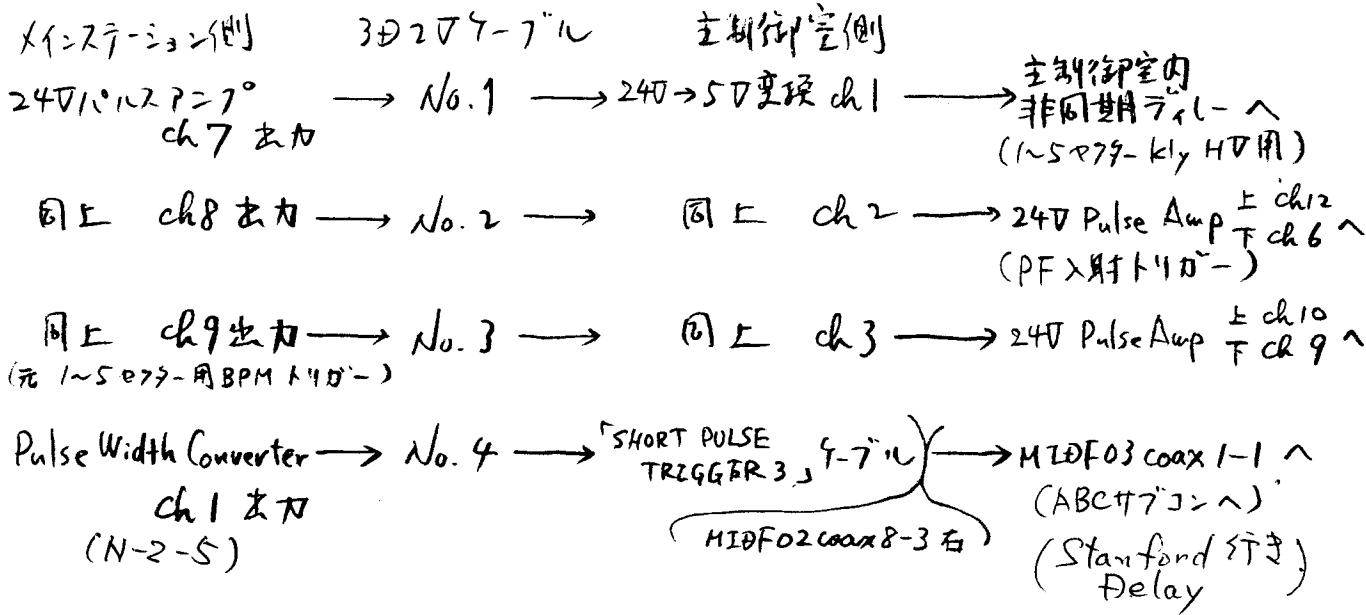 メインステーション側 3D2Vケーブル 主制御室側
24Vパルスアンプ → No.1 → 24V→5V変換 ch1 → 主制御室内
ch7 出力 非同期ディレーへ
(1~5セクター kly HV用)
同上 ch8 出力 → No.2 → 同上 ch2 → 24V Pulse Amp 上 ch12
下 ch6 へ
(PF入射トリガー)
同上 ch9出力 → No.3 → 同上 ch3 → 24V Pulse Amp 上 ch10
下 ch9 へ
(元 1~5セクター用BPMトリガー)
Pulse Width Converter → No.4 → 「SHORT PULSE
TRIGGER 3」ケーブル → MIDF03 coax 1-1 へ
ch1 出力 (ABCサブコンへ)
(N-2-5) MIDF02 coax 8-3 右
(Stanford 行き
Delay)